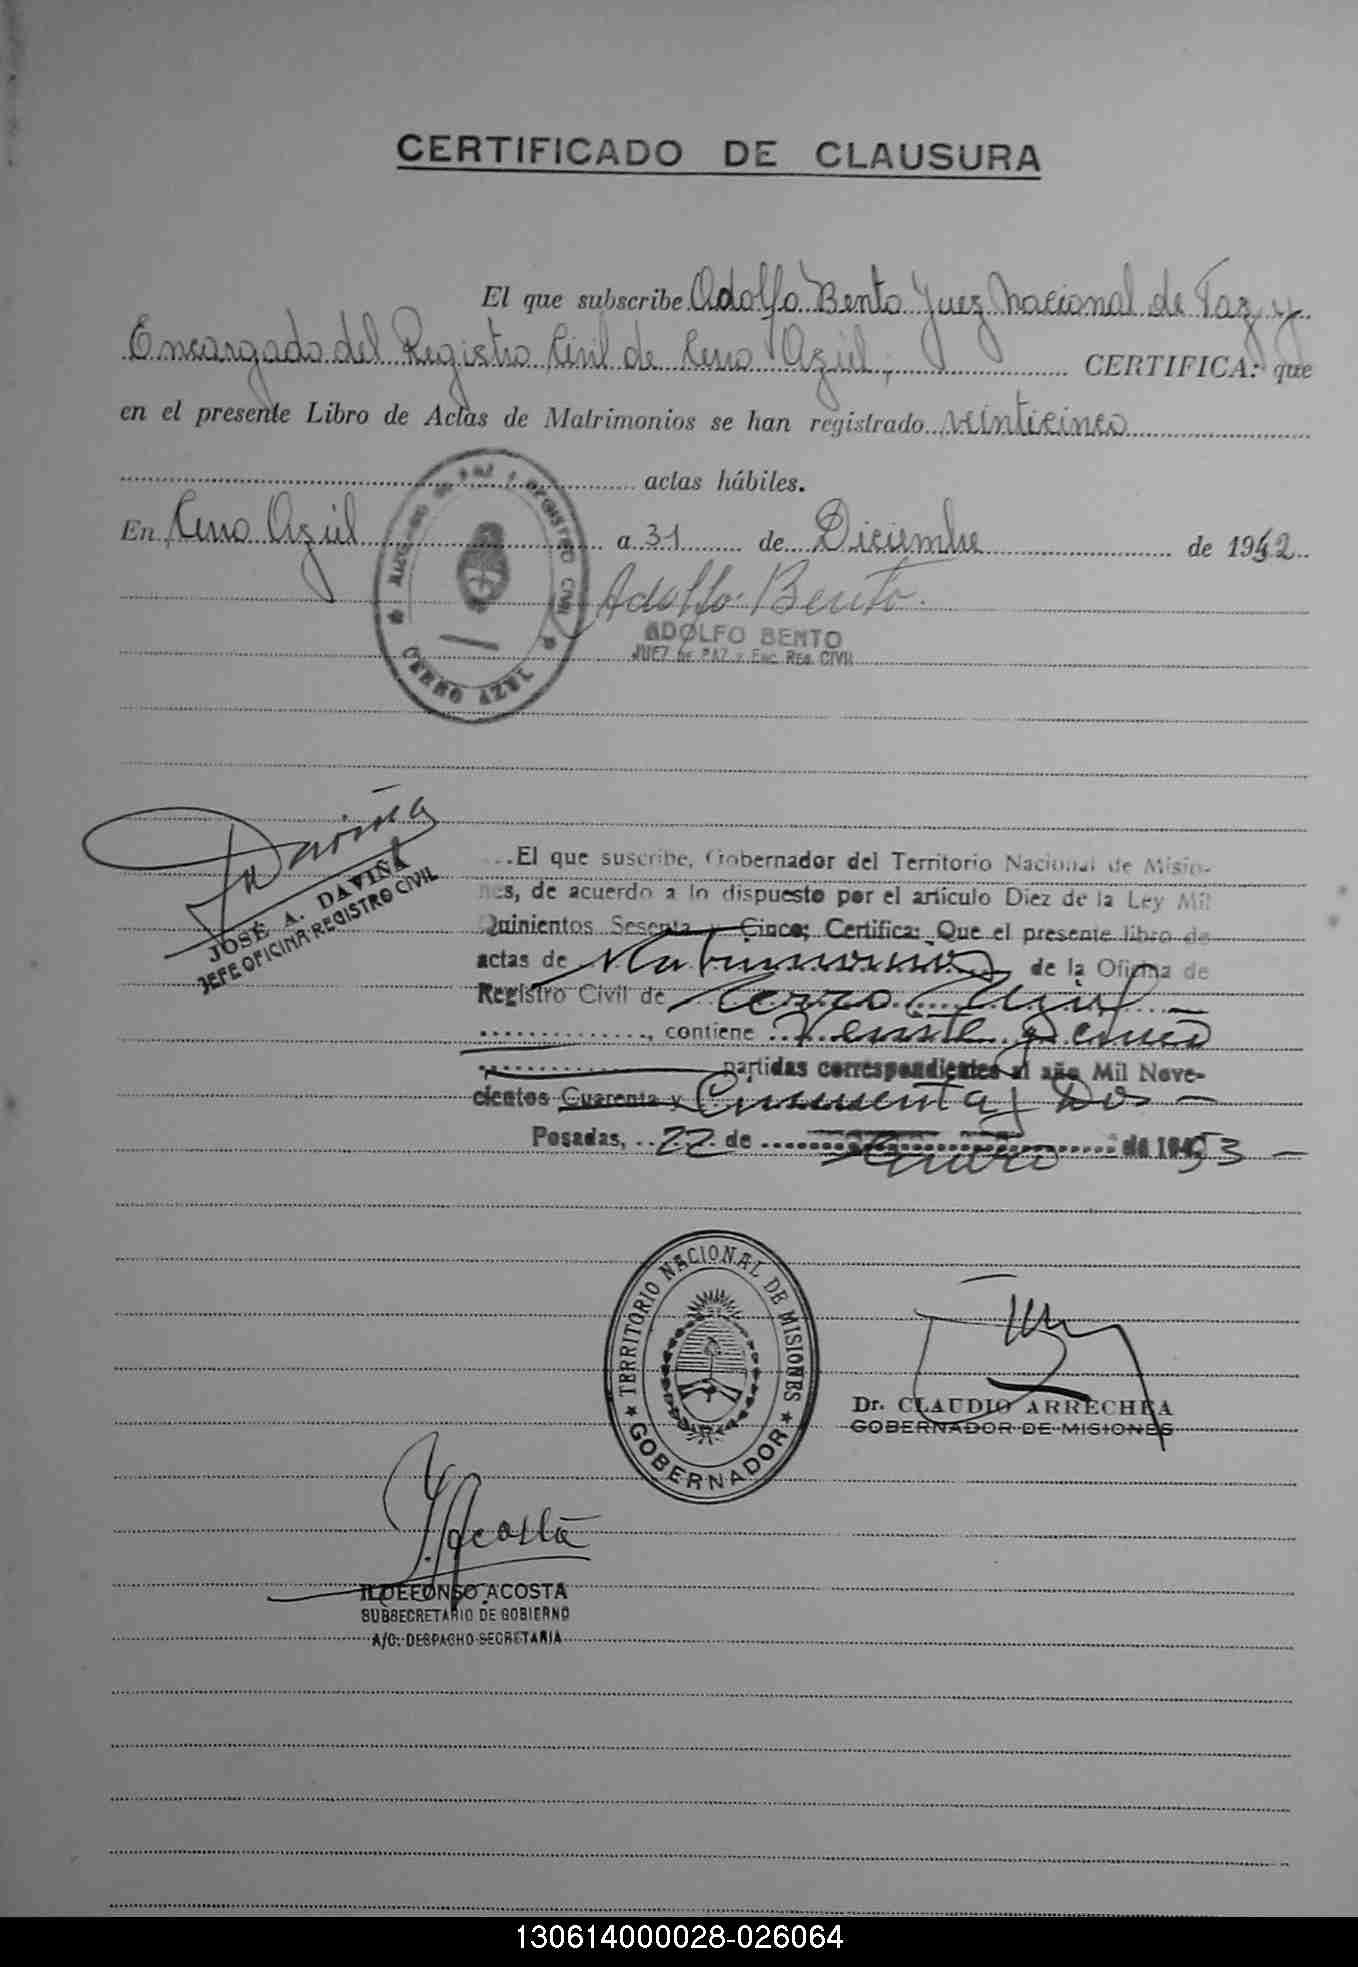 CERTIFICADO DE CLAUSURA
El que subscribe Adolfo Bento Juez Nacional de Paz y
Encargado del Registro Civil de Cerro Azul, CERTIFICA: que
en el presente Libro de Actas de Matrimonios se han registrado veinticinco
actas hábiles.
En Cerro Azul a 31 de Diciembre de 1952
Adolfo Bento.
ADOLFO BENTO
JUEZ DE PAZ y ENC. REG. CIVIL
JUZGADO DE PAZ Y REGISTRO CIVIL
CERRO AZUL
Daviña
JOSÉ A. DAVIÑA
JEFE OFICINA REGISTRO CIVIL
El que suscribe, Gobernador del Territorio Nacional de Misio-
nes, de acuerdo a lo dispuesto por el artículo Diez de la Ley Mil
Quinientos Sesenta y Cinco; Certifica: Que el presente libro de
actas de Matrimonios de la Oficina de
Registro Civil de Cerro Azul
contiene Veinte y cinco
partidas correspondientes al año Mil Nove-
cientos Cuarenta y Cincuenta y Dos
Posadas, 22 de Enero de 1953
TERRITORIO NACIONAL DE MISIONES
GOBERNADOR
Dr. CLAUDIO ARRECHEA
GOBERNADOR DE MISIONES
I. Acosta
ILDEFONSO ACOSTA
SUBSECRETARIO DE GOBIERNO
A/C. DESPACHO SECRETARIA
130614000028-026064